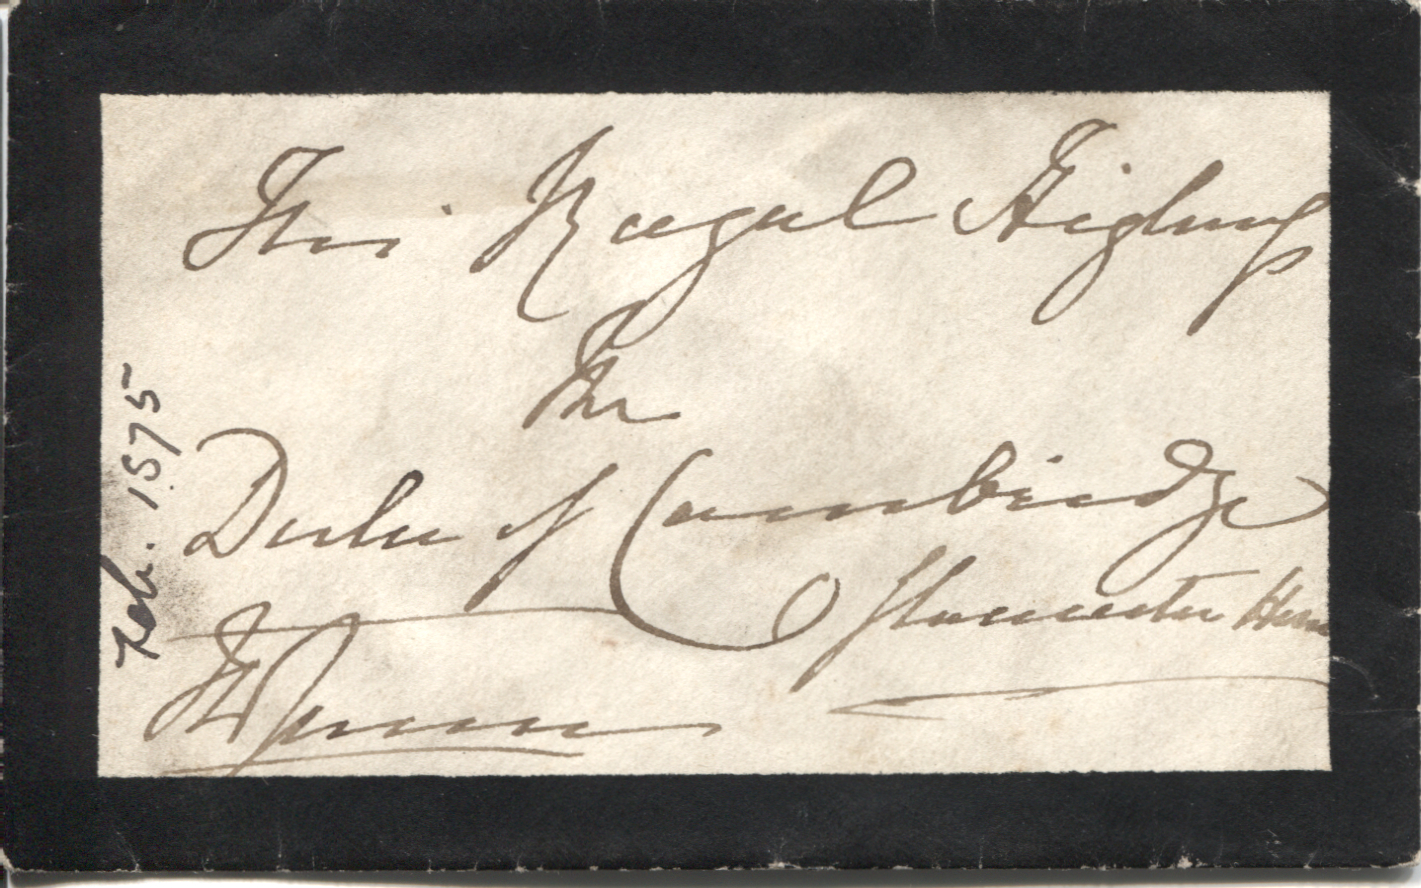 His Royal Highness
The
Duke of Cambridge
Gloucester House
Feb. 1875